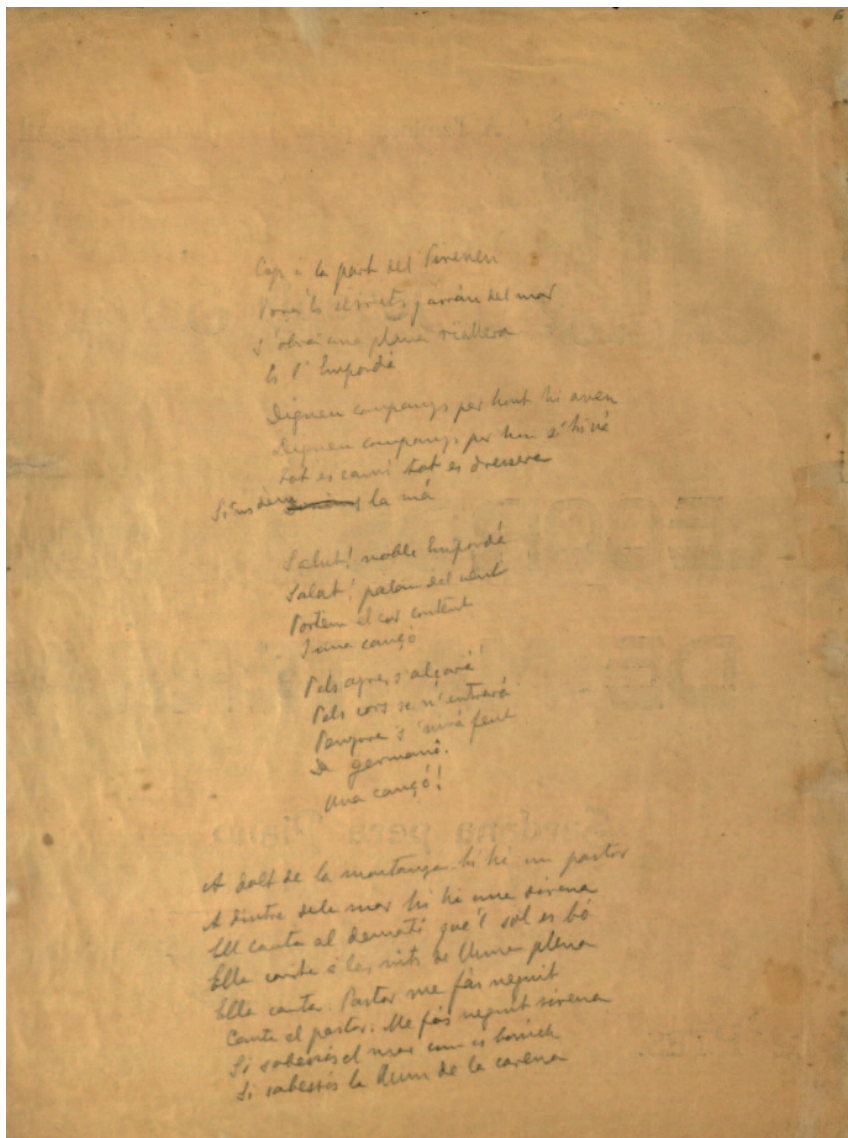 Cap à la part del Pirenen
Vora'ls serrets y arrán del mar
S'obra una plana riallera
Es l'Empordá
Digueu companys per hont hi aneu
Digueu companys per hon s'hi vá
tot es camí tot es dressera
Si'ns dem la má
Salut! noble Empordá
Salut! palau del vent
Portem el cor content
I una cançó
Pels ayres s'alçará
Pels cors se n'entrará
Penyora s'nirá fent
De germanó.
Una cançó!
A dalt de la montanya hi hi un pastor
A dintre dela mar hi hi una sirena
Ell canta al dematí que'l sol es bó
Ella canta à les nits de lluna plena
Ella canta. Pastor me fás neguit
Canta el pastor: Me fás neguit sirena
Si sabessis el mar com es bonich
Si sabessis la llum de la carena